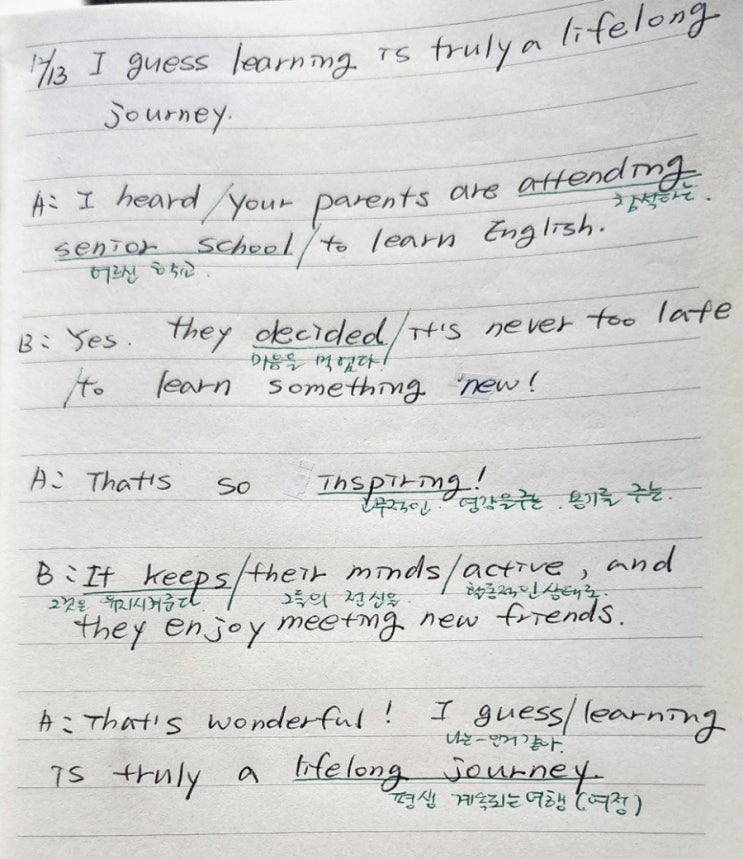 12/13 I guess learning is truly a lifelong
journey.
A: I heard / your parents are attending
참석하는.
senior school / to learn English.
어르신 학교.
B: Yes. they decided / it's never too late
마음을 먹었다!
/ to learn something new!
A: That's so inspiring!
영감을주는. 용기를 주는.
B: It keeps / their minds / active, and
그것은 유지시켜준다. 그들의 정신을. 활동적인 상태로.
they enjoy meeting new friends.
A: That's wonderful! I guess / learning
나는 - 인거 같아.
is truly a lifelong journey.
평생 계속되는 여행 (여정)